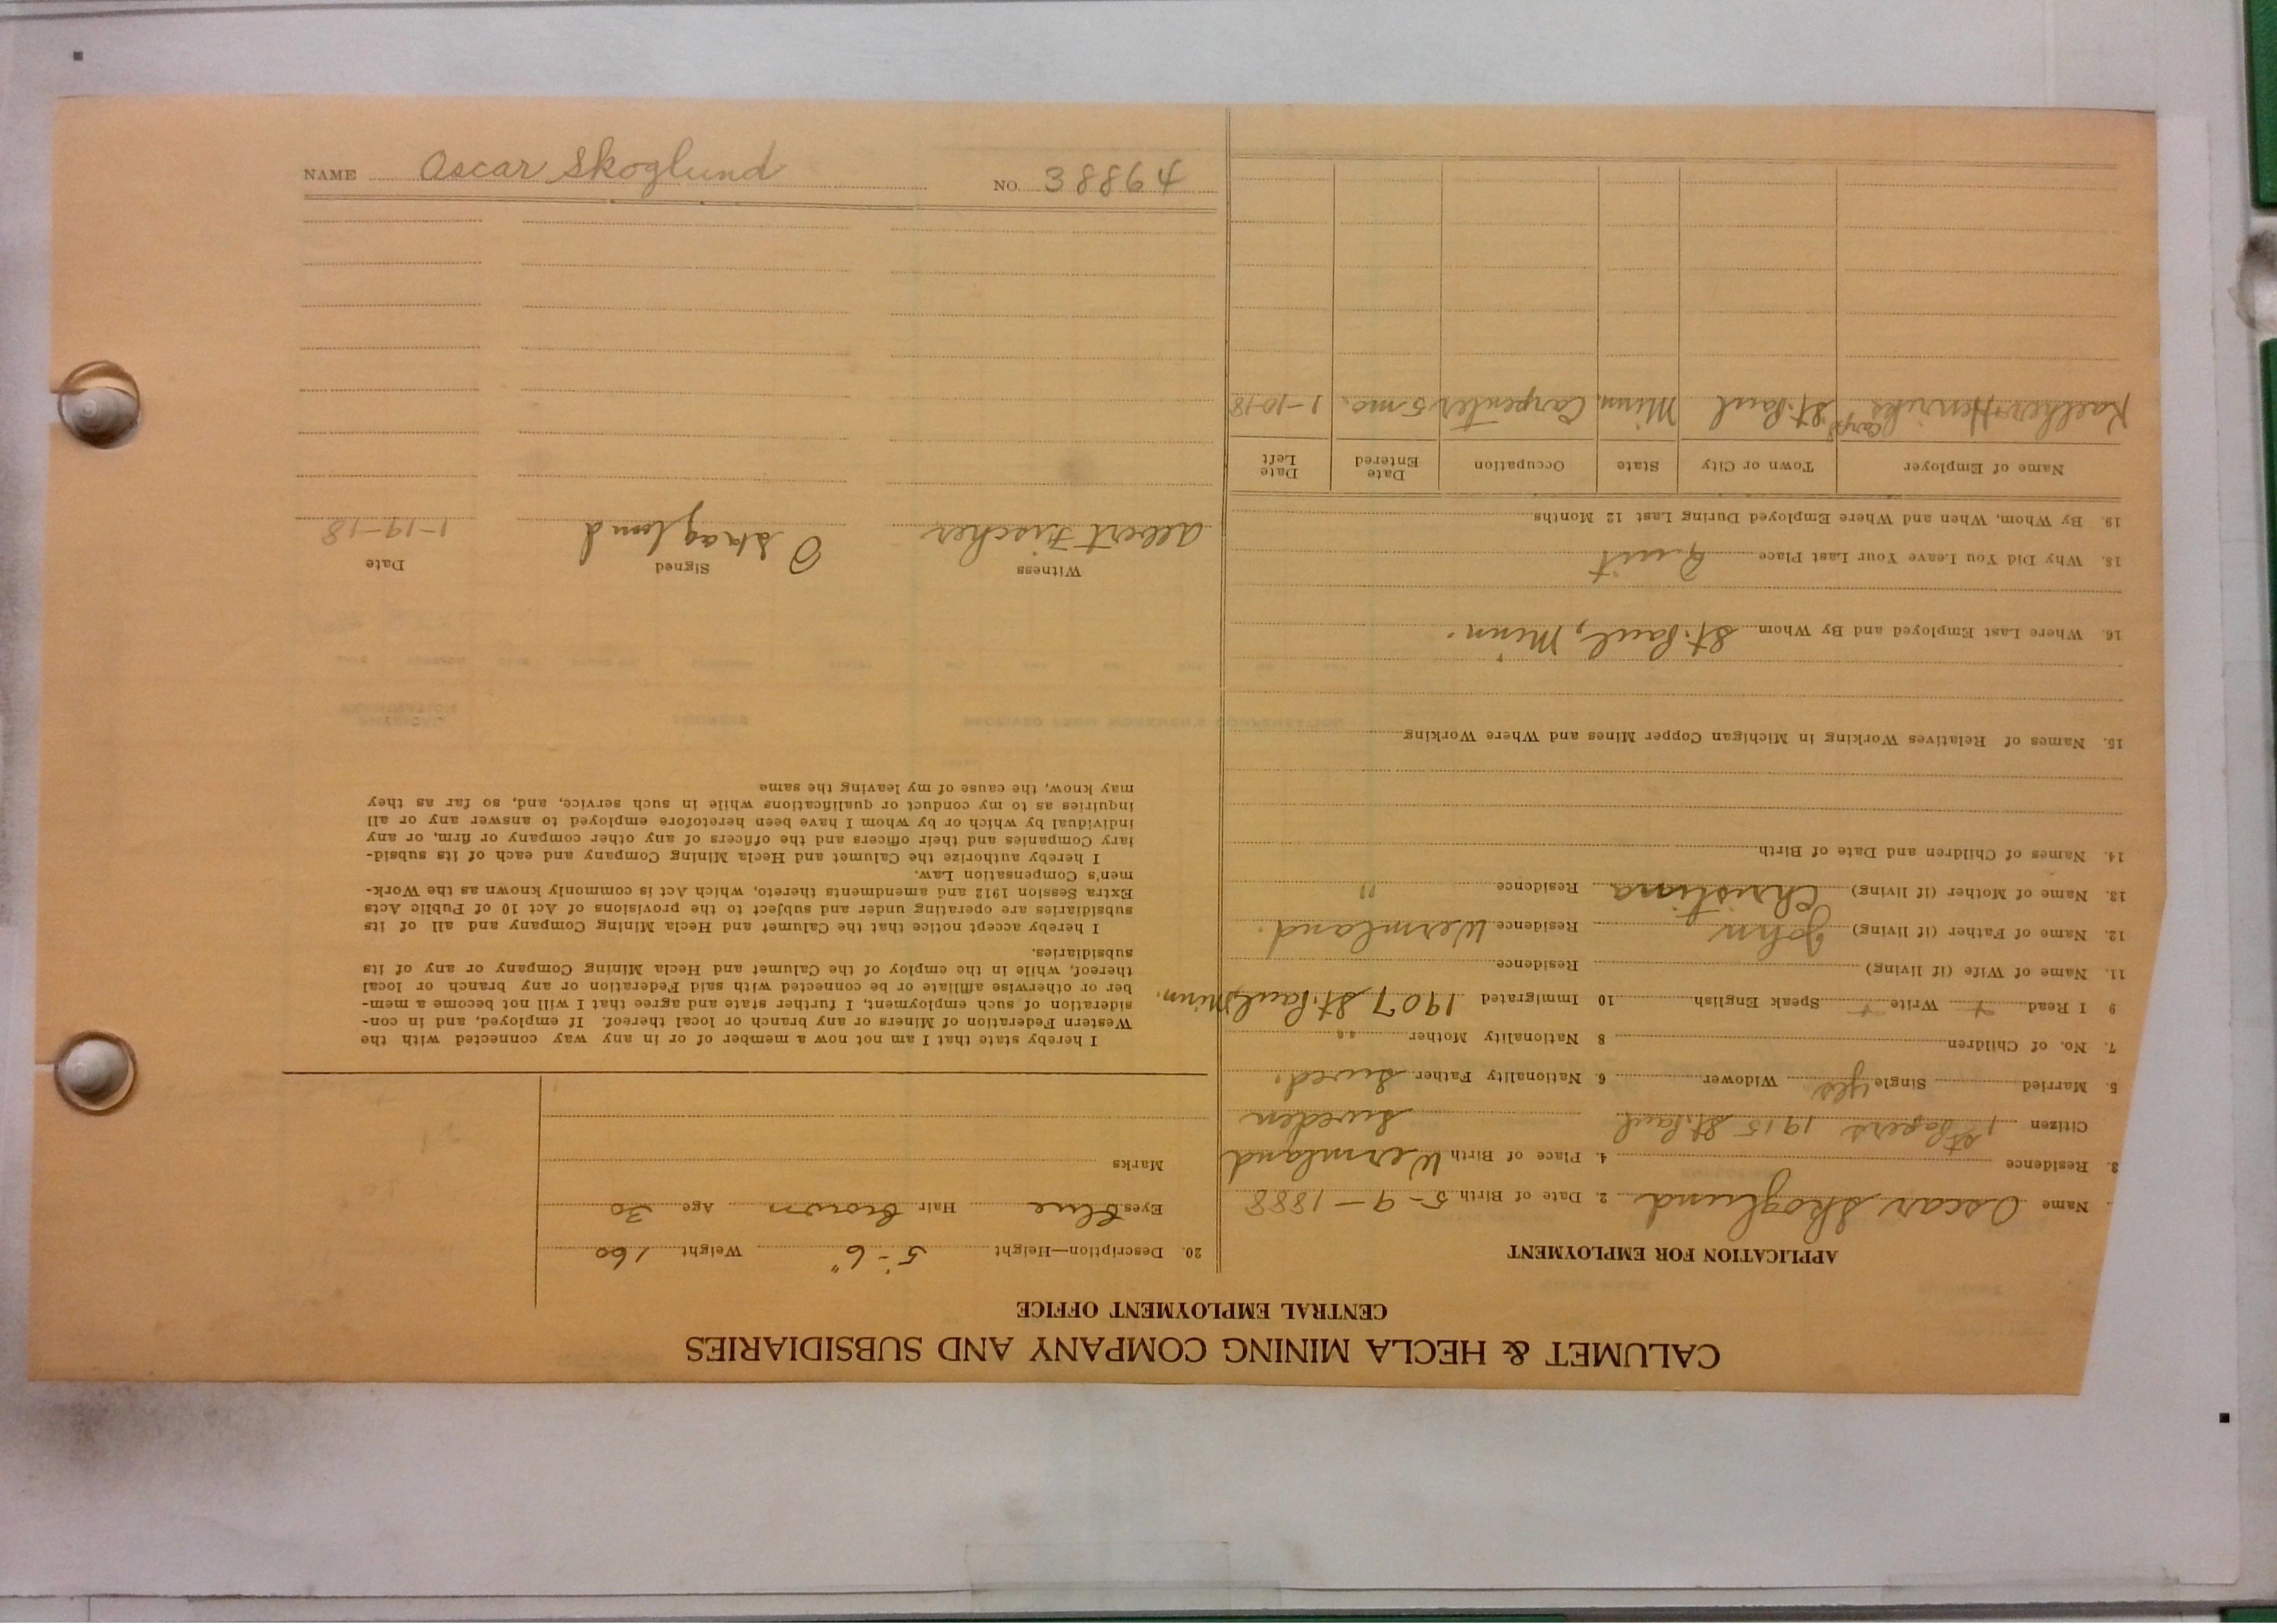 CALUMET & HECLA MINING COMPANY AND SUBSIDIARIES
CENTRAL EMPLOYMENT OFFICE
APPLICATION FOR EMPLOYMENT
Name Oscar Skoglund 2. Date of Birth 5-9-1888
3. Residence 4. Place of Birth Wermland
Citizen 1st Papers 1915 St. Paul Sweden
5. Married Single yes Widower 6. Nationality Father Swed.
7. No. of Children 8 Nationality Mother "
9 I Read + Write + Speak English 10 Immigrated 1907 St. Paul, Minn.
11. Name of Wife (if living) Residence
12. Name of Father (if living) John Residence Wermland.
13. Name of Mother (if living) Christina Residence "
14. Names of Children and Date of Birth
15. Names of Relatives Working in Michigan Copper Mines and Where Working
16. Where Last Employed and By Whom St. Paul, Minn.
18. Why Did You Leave Your Last Place Quit
19. By Whom, When and Where Employed During Last 12 Months
Name of Employer Town or City State Occupation Date Entered Date Left
Henricks St. Paul Minn. Carpenter 5 mo. 1-10-18
20. Description—Height 5'-6" Weight 160
Eyes Blue Hair Brown Age 30
Marks
I hereby state that I am not now a member of or in any way connected with the
Western Federation of Miners or any branch or local thereof. If employed, and in con-
sideration of such employment, I further state and agree that I will not become a mem-
ber or otherwise affiliate or be connected with said Federation or any branch or local
thereof, while in the employ of the Calumet and Hecla Mining Company or any of its
subsidiaries.
I hereby accept notice that the Calumet and Hecla Mining Company and all of its
subsidiaries are operating under and subject to the provisions of Act 10 of Public Acts
Extra Session 1912 and amendments thereto, which Act is commonly known as the Work-
men's Compensation Law.
I hereby authorize the Calumet and Hecla Mining Company and each of its subsid-
iary Companies and their officers and the officers of any other company or firm, or any
individual by which or by whom I have been heretofore employed to answer any or all
inquiries as to my conduct or qualifications while in such service, and, so far as they
may know, the cause of my leaving the same
Witness Signed Date
Albert Fischer O Skaglund 1-19-18
NAME Oscar Skoglund NO. 38864